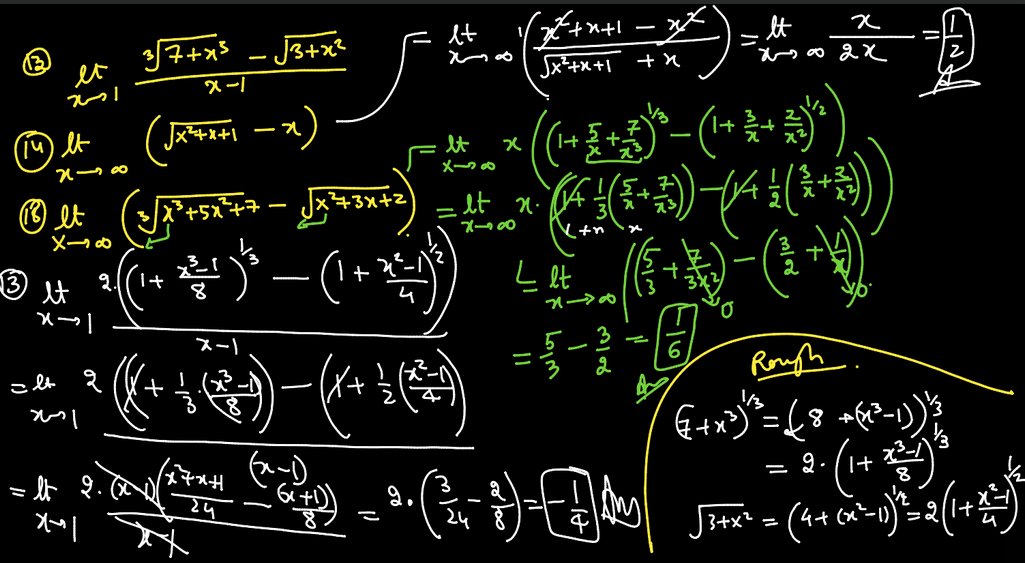 (13) lt x→1 (∛(7+x³) − √(3+x²))/(x−1)
(14) lt x→∞ (√(x²+x+1) − x)
= lt x→∞ ((x²+x+1 − x²)/(√(x²+x+1) + x)) = lt x→∞ x/2x = 1/2
(18) lt x→∞ (∛(x³+5x²+7) − √(x²+3x+2))
= lt x→∞ x((1+5/x+7/x³)^1/3 − (1+3/x+2/x²)^1/2)
= lt x→∞ x·((1+1/3(5/x+7/x³)) − (1+1/2(3/x+2/x²)))
1+n x
= lt x→∞ ((5/3+7/3x²) − (3/2+1/x))
0 0
= 5/3 − 3/2 = 1/6
Ans
(13) lt x→1 2·((1+(x³−1)/8)^1/3 − (1+(x²−1)/4)^1/2)/(x−1)
= lt x→1 2((1+1/3·((x³−1)/8)) − (1+1/2((x²−1)/4)))
= lt x→1 2·(x−1)((x²+x+1)/24 − (x−1)(x+1)/8)/(x−1) = 2·(3/24 − 2/8) = −1/4 Ans
Rough.
(7+x³)^1/3 = (8+(x³−1))^1/3
= 2·(1+(x³−1)/8)^1/3
√(3+x²) = (4+(x²−1))^1/2 = 2(1+(x²−1)/4)^1/2